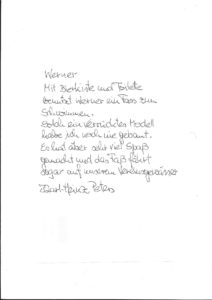 Werner
Mit Bierkiste und Toilette
benutzt Werner ein Fass zum
Schwimmen.
Solch ein verrücktes Modell
habe ich noch nie gebaut.
Es hat aber sehr viel Spaß
gemacht und das Faß fährt
sogar auf unserem Vereinsgewässer
Karl-Heinz Peters